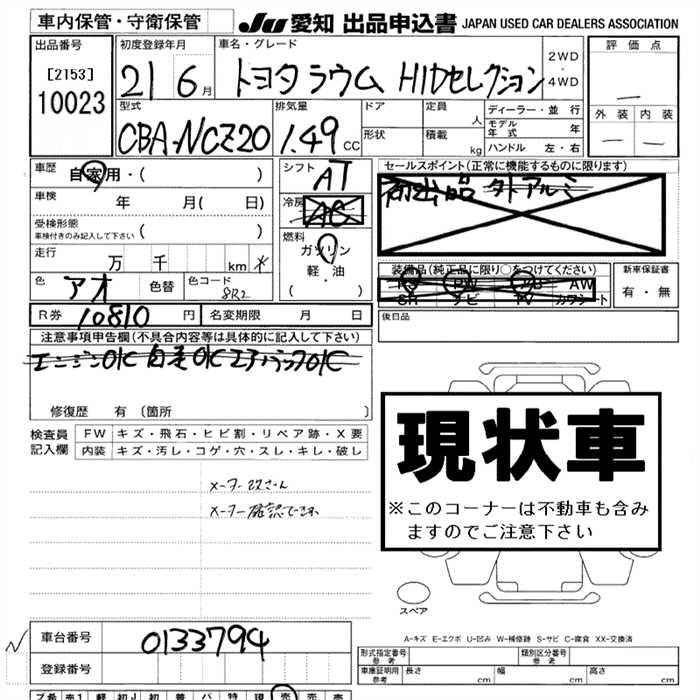 車内保管・守衛保管
JU 愛知 出品申込書 JAPAN USED CAR DEALERS ASSOCIATION
出品番号
[2153]
10023
初度登録年月
21 6月
車名・グレード
トヨタ ラウム HIDセレクション
2WD
・
4WD
評価点
型式
CBA-NCZ20
排気量
1.49 CC
ドア
定員
人
形状
積載
kg
ディーラー・並行
モデル年式
年
ハンドル 左・右
外装 内装
車歴
自家用・( )
車検
年 月( 日)
受検形態
車検付きのみ記入して下さい ( )
走行
万 千 km
色
アオ
色替
色コード
8R2
シフト
AT
冷房
AC
燃料
ガソリン
軽・油
( ・ )
セールスポイント(正常に機能するものに限ります)
外アルミ
装備品(純正品に限り○をつけてください)
PS PW AB AW
SR ナビ TV カワシート
新車保証書
有・無
後日品
R券 10810 円
名変期限 月 日
注意事項申告欄(不具合内容等は具体的に記入して下さい)
エンジンO/C 自走O/C エアバックO/C
修復歴 有〔箇所 〕
検査員
記入欄
FW キズ・飛石・ヒビ割・リペア跡・X要
内装 キズ・汚し・コゲ・穴・スレ・キレ・破し
メーター改ざん
メーター確認できず
現状車
※このコーナーは不動車も含み
ますのでご注意下さい
スペア
A-キズ E-エクボ U-凹み W-補修跡 S-サビ C-腐食 XX-交換済
車台番号 0133794
登録番号
形式指定番号
参考
類別区分番号
参考
車庫証明用
参考
長さ cm 幅 cm 高さ cm